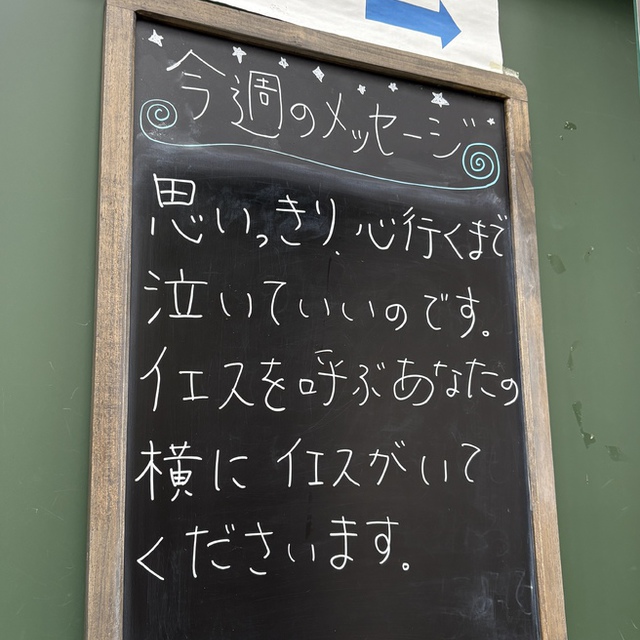 今週のメッセージ
思いっきり、心行くまで
泣いていいのです。
イエスを呼ぶあなたの
横にイエスがいて
くださいます。